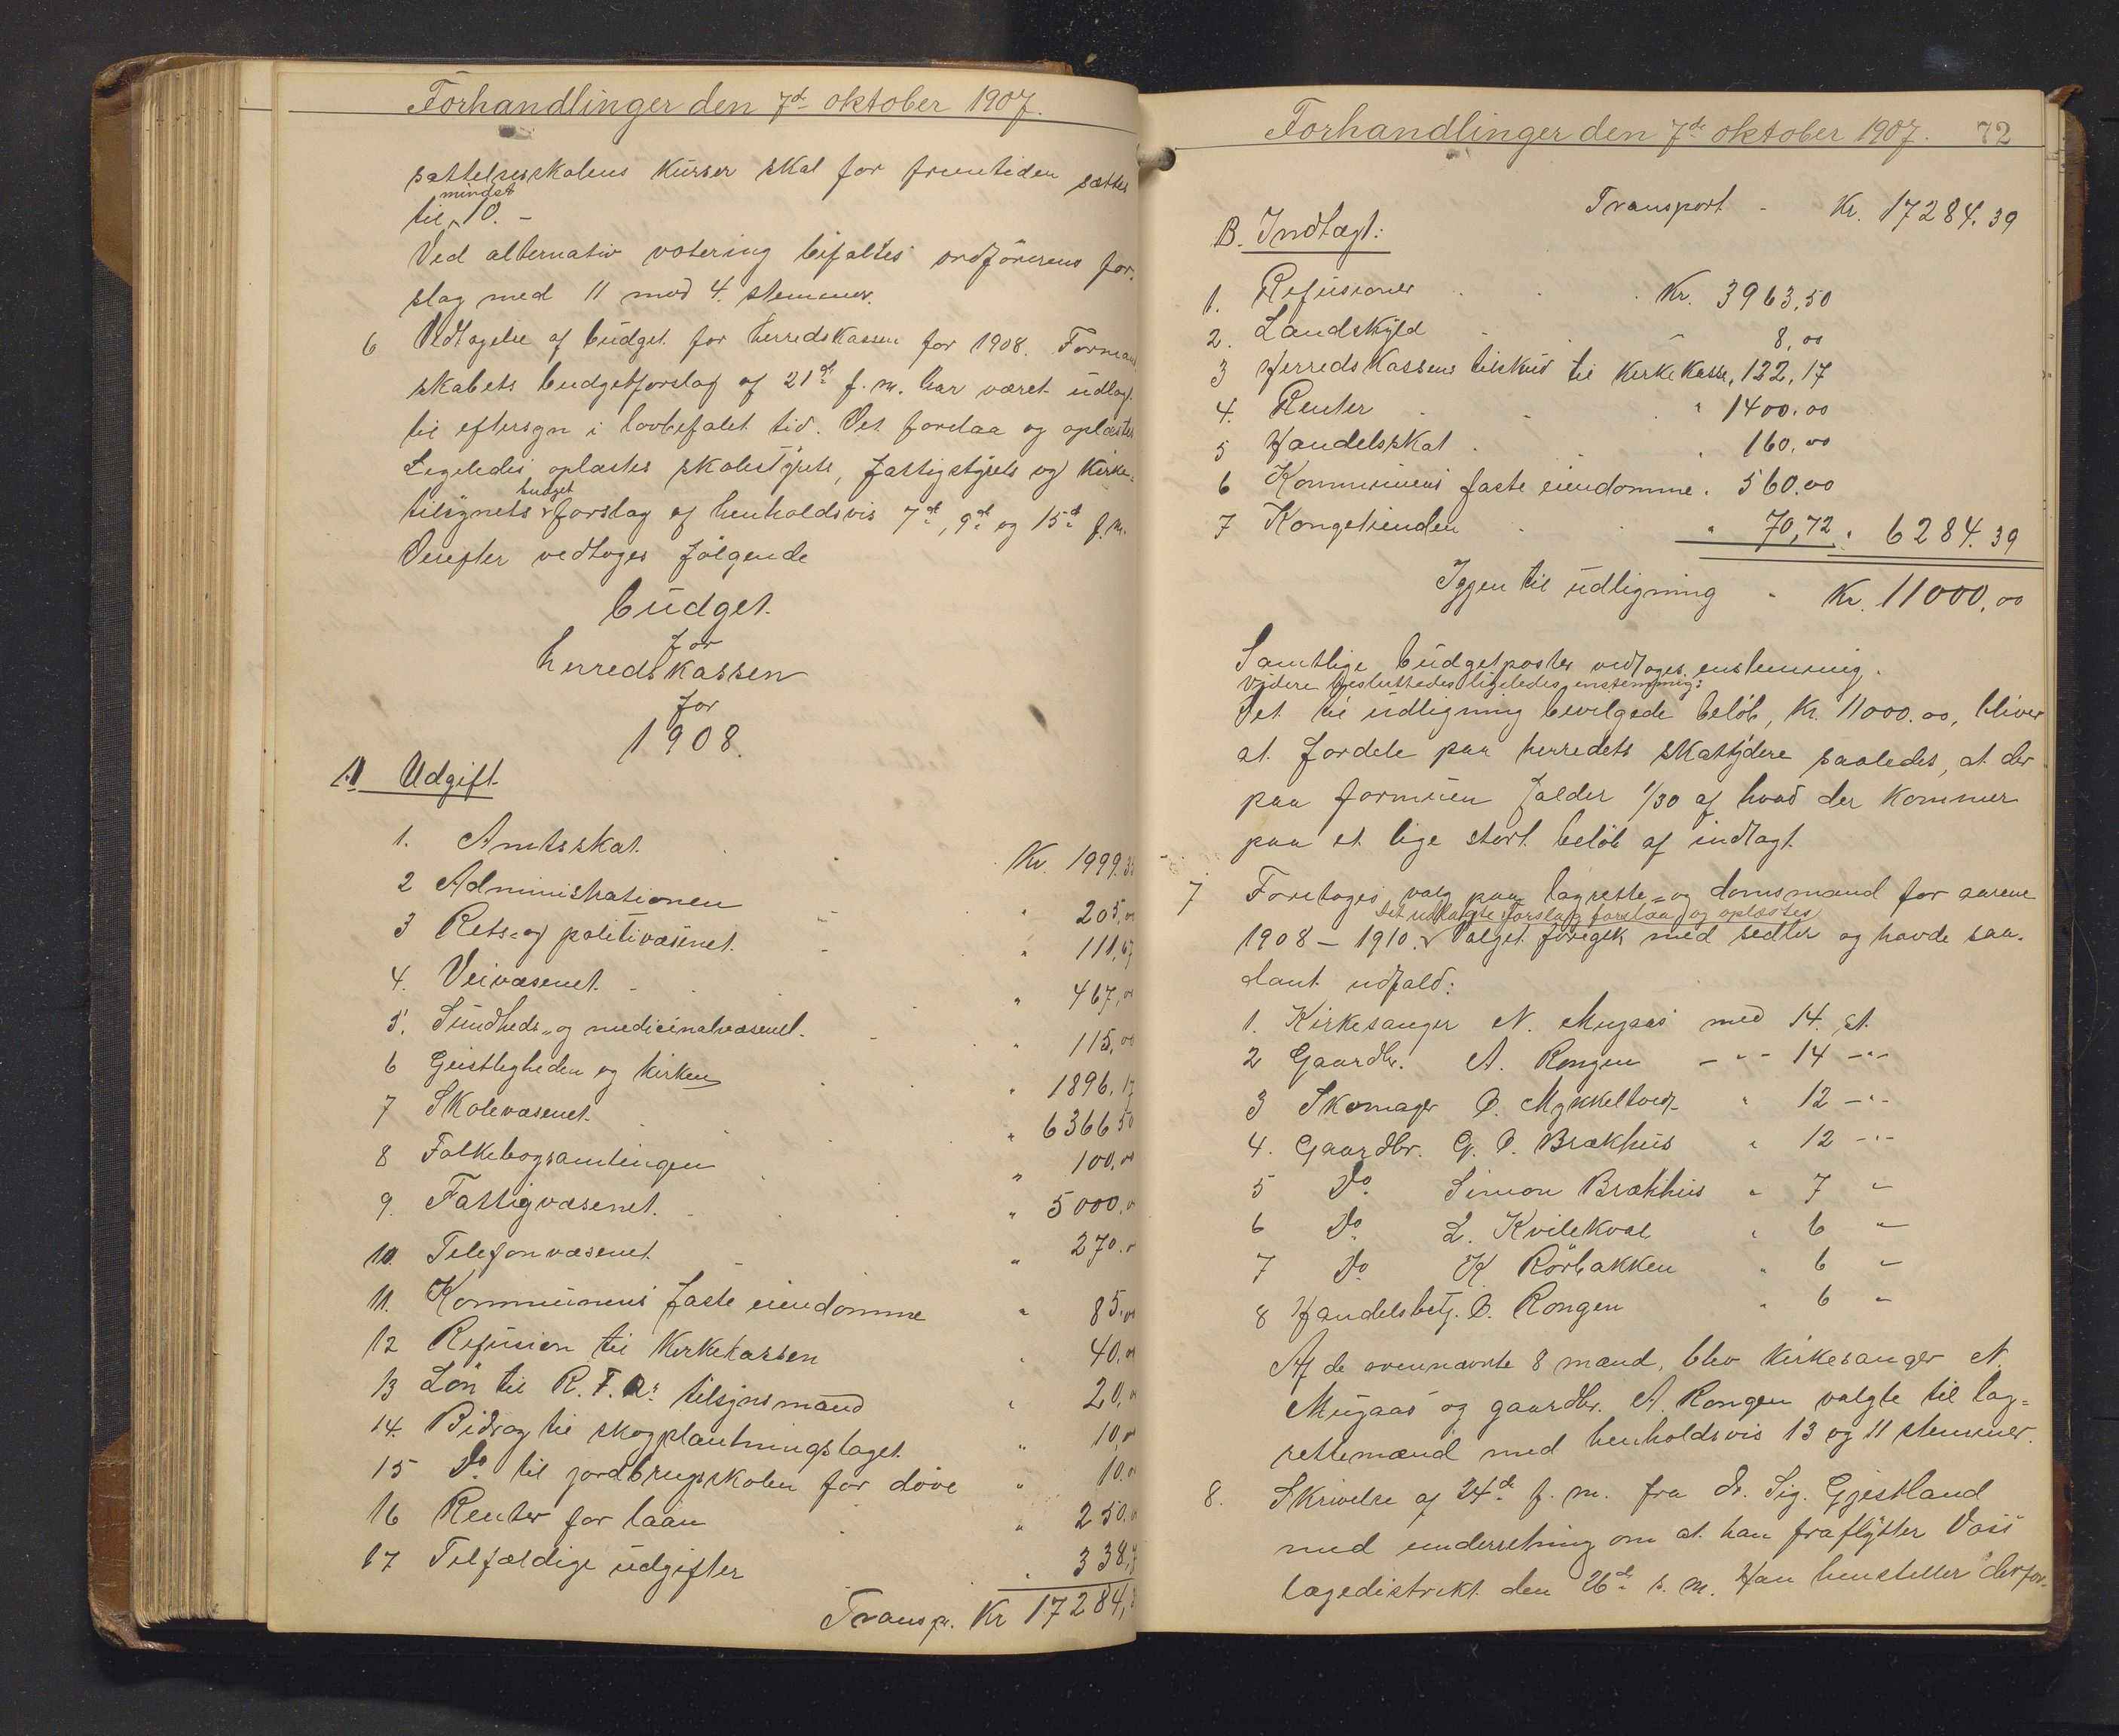 Forhandlinger den 7de oktober 1907.
sættelsesskolens kurser skal for fremtiden sættes
mindst
til 10. –
Ved alternativ votering bifaltes ordførerens for-
slag med 11 mod 4 stemmer.
6 Vedtagelse af budget for herredskassen for 1908. Formand
skabets budgetforslag af 21de f. m. har været udlagt
til eftersyn i lovbefalet tid. Det forelaa og oplæstes
Ligeledes oplæstes skolestyrets, fattigstyrets og kirke-
budget
tilsynets forslag af henholdsvis 7de, 9de og 15de f. m.
Derefter vedtoges følgende
budget
for
herredskassen
for
1908.
A Udgift.
1. Amtsskat Kr. 1999.35
2 Administrationen " 205,00
3 Rets- og politivæsenet " 111,67
4. Veivæsenet " 467,00
5. Sundheds- og medicinalvæsenet " 115,00
6 Geistligheden og kirken " 1896,17
7 Skolevæsenet " 6366 50
8 Folkebogsamlingen " 100,00
9. Fattigvæsenet " 5000,00
10. Telefonvæsenet " 270.00
11. Kommunens faste eiendomme " 85,00
12 Refusion til Kirkekassen " 40,00
13 Løn til R. F. A's tilsynsmand " 20,00
14. Bidrag til skogplantningslaget " 10,00
15 Do til jordbrugsskolen for døve " 10.00
16 Renter for laan " 250.00
17 Tilfældige udgifter " 338,7
Transp. Kr 17284,3
Forhandlinger den 7de oktober 1907. 72
Transport - Kr. 17284.39
B. Indtægt:
1. Refusioner Kr. 3963,50
2. Landskyld " 8,00
3 Herredskassens tilskud til kirkekasse, 122,17
4. Renter " 1400.00
5 Handelsskat " 160,00
6 Kommunens faste eiendomme " 560.00
7 Kongetienden " 70,72 " 6284.39
Igjen til udligning - Kr. 11000,00
Samtlige budgetposter vedtoges enstemmig.
Videre besluttedes ligeledes enstemmig:
Det til udligning bevilgede beløb, Kr. 11000.00, bliver
at fordele paa herredets skatydere saaledes, at der
paa formuen falder 1/30 af hvad der kommer
paa et lige stort beløb af indtægt.
7 Foretoges valg paa lagrette- og domsmænd for aarene
Det udlagte forslag forelaa og oplæstes
1908 – 1910. Valget foregik med sedler og havde saa-
dant udfald:
1. Kirkesanger N. Mugaas med 14. st.
2 Gaardbr. A. Rongen – " – 14 – " –
3 Skomager O. Mykkeltvedt " 12 – " –
4. Gaardbr. G. O. Brækhus " 12 – " –
5 Do Simon Brækhus " 7 "
6 Do L. Kvilekval " 6 "
7 Do K Rørbakken " 6 "
8 Handelsbetj. O. Rongen " 6 "
Af de ovennævnte 8 mænd, blev kirkesanger N.
Mugaas og gaardbr. A. Rongen valgte til lag-
rettemænd med henholdsvis 13 og 11 stemmer.
8. Skrivelse af 24de f. m. fra dr. Sig. Gjestland
med underretning om at han fraflytter Voss
lægedistrikt den 26de s. m. Han henstiller derfor